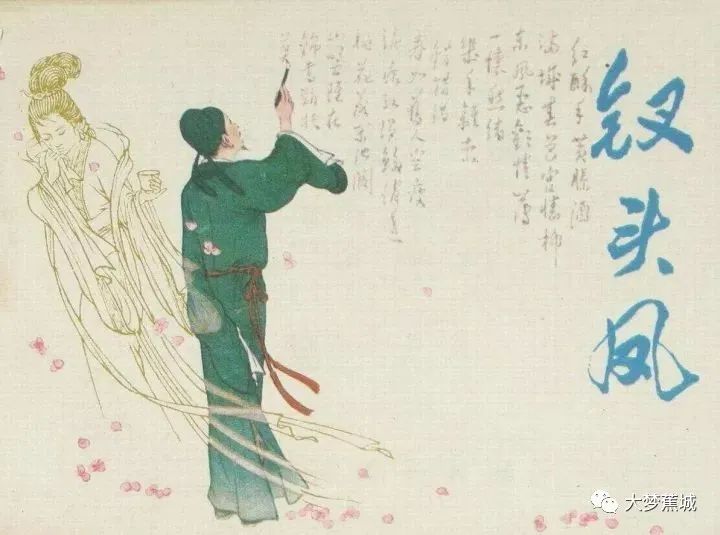 钗头凤
红酥手黄縢酒
满城春色宫墙柳
东风恶欢情薄
一怀愁绪
几年离索
错错错
春如舊人空瘦
泪痕红浥鲛绡透
桃花落闲池阁
山盟雖在
锦书难托
莫
大梦蕉城